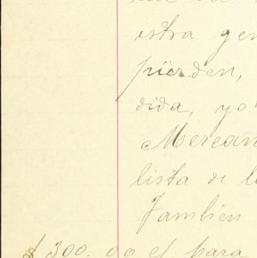 istra gen
pierden,
dida, yo
Mercan
lista de l
Tambien
$300.00 el para